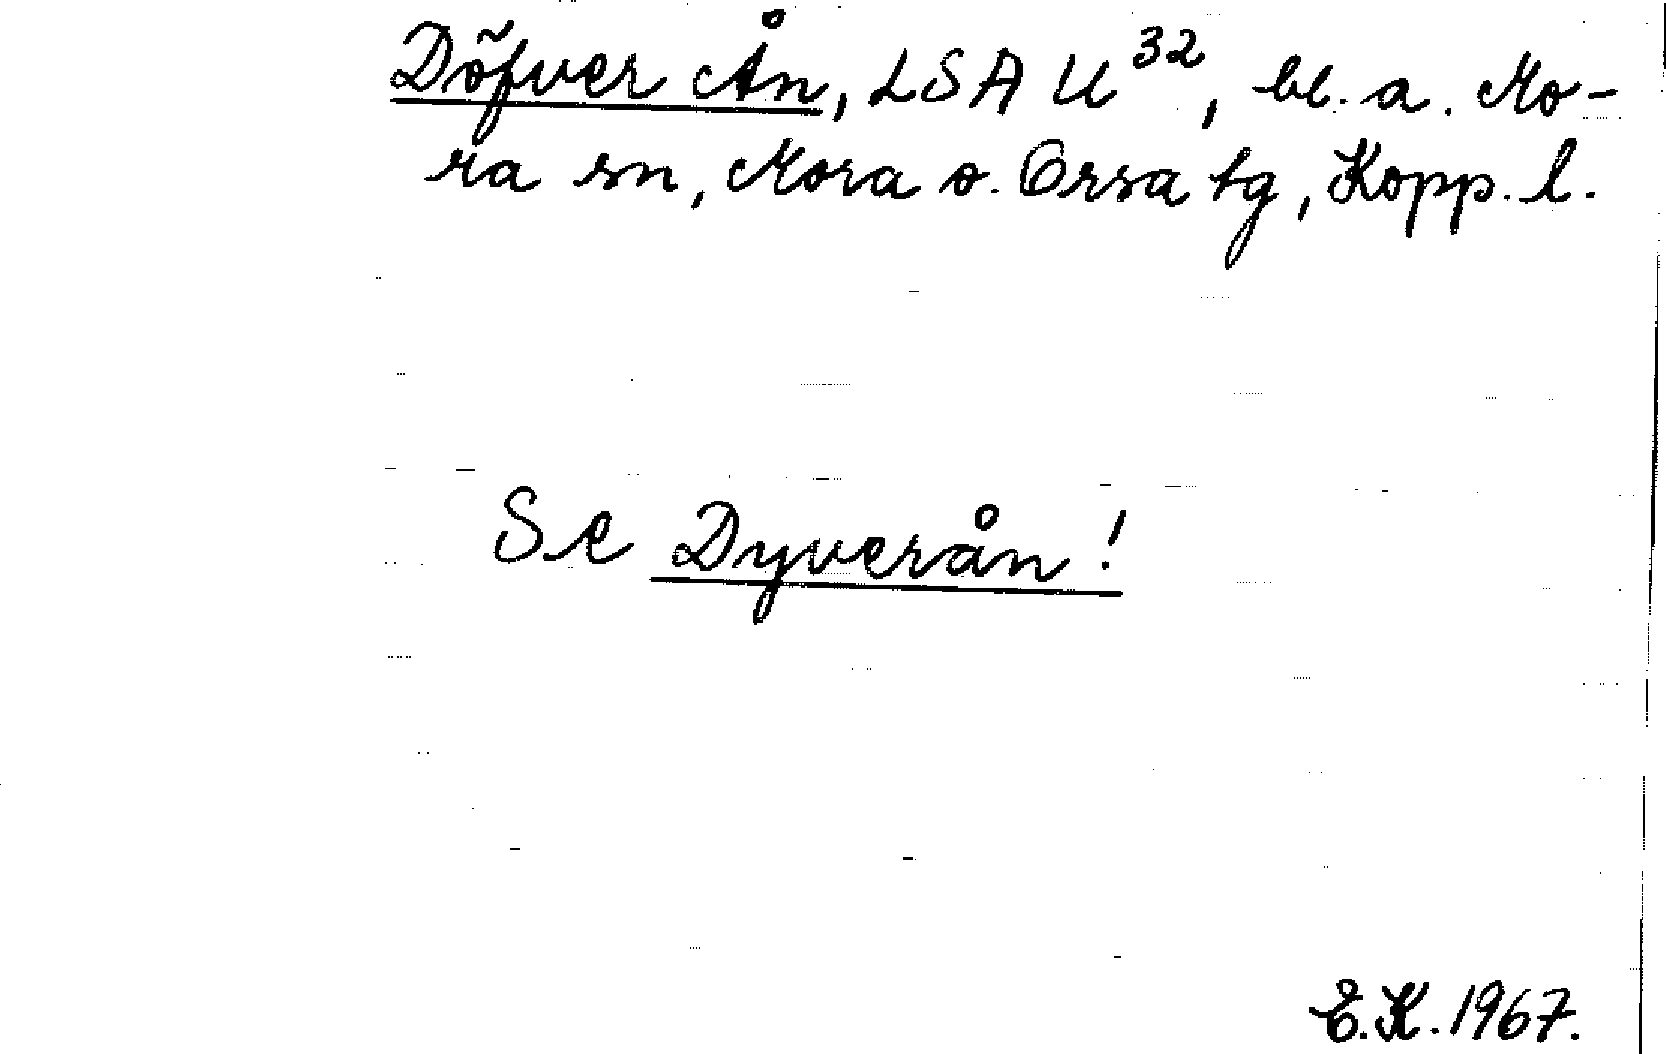 Dõfver Ån, LSA U³², bl. a. Mo-
ra sn, Mora o. Orsa tg, Kopp. l.
Se Dyverån!
E.K. 1967.